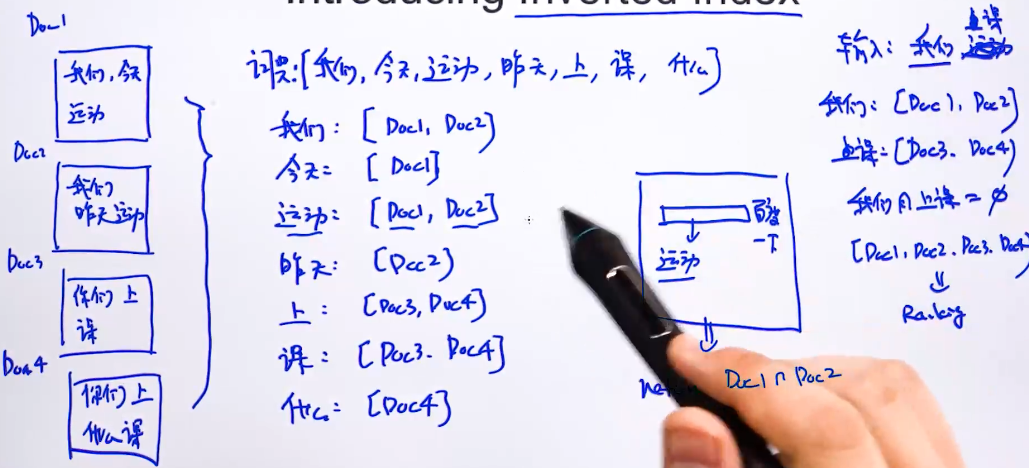 Introducing Inverted Index
Doc1
我们, 今天
运动
Doc2
我们
昨天运动
Doc3
你们 上
课
Doc4
你们 上
什么课
词典: [我们, 今天, 运动, 昨天, 上, 课, 什么]
我们: [Doc1, Doc2]
今天: [Doc1]
运动: [Doc1, Doc2]
昨天: [Doc2]
上: [Doc3, Doc4]
课: [Doc3. Doc4]
什么: [Doc4]
百度
一下
运动
Doc1 ∩ Doc2
输入: 我们 上课
我们: [Doc1, Doc2]
上课: [Doc3. Doc4]
我们 ∩ 上课 = ∅
[Doc1, Doc2. Doc3. Doc4]
Ranking